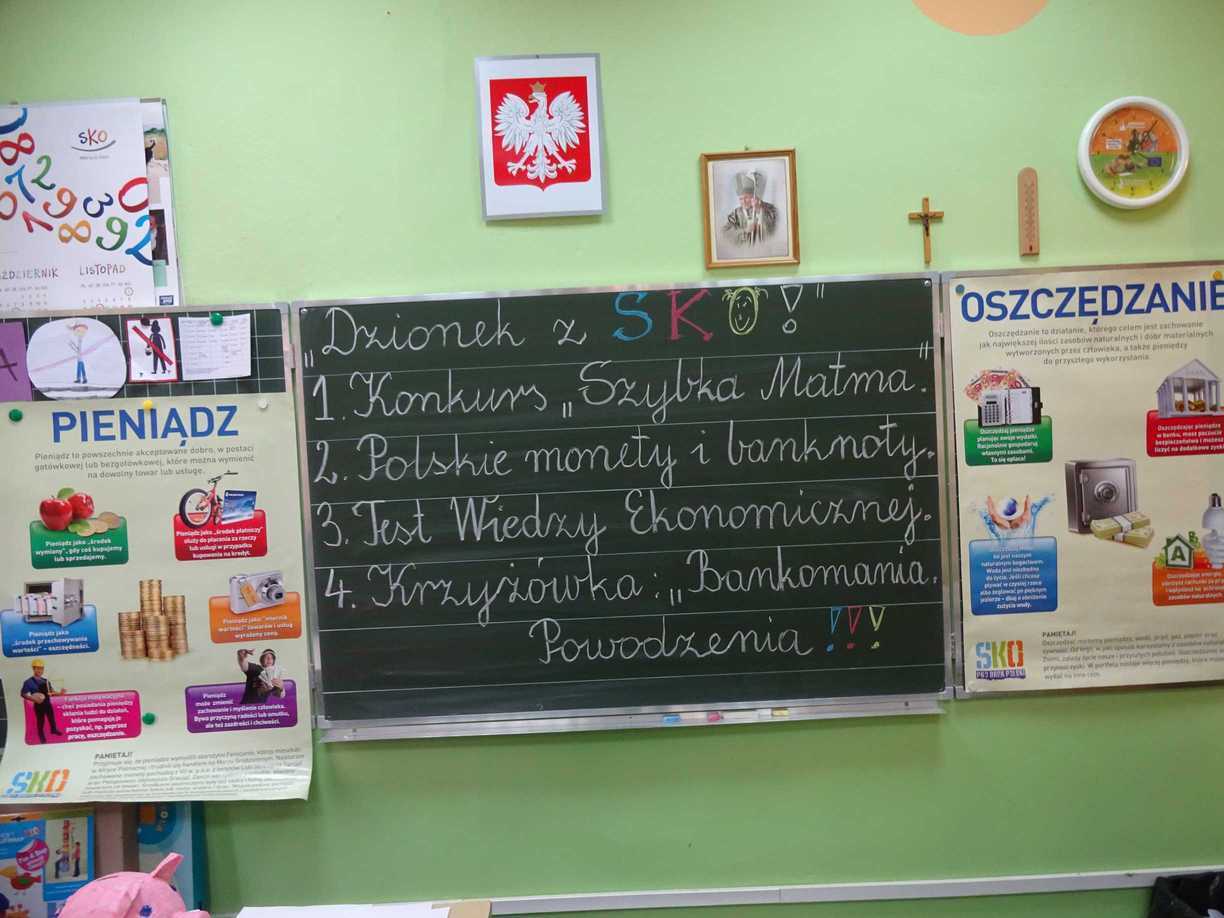 „Dzionek z SKO!"
1. Konkurs „Szybka Matma."
2. Polskie monety i banknoty.
3. Test Wiedzy Ekonomicznej.
4. Krzyżówka: „Bankomania.
Powodzenia !!!
SKO
PAŹDZIERNIK
LISTOPAD
PIENIĄDZ
Pieniądz to powszechnie akceptowane dobro, w postaci
gotówkowej lub bezgotówkowej, które można wymienić
na dowolny towar lub usługę.
Pieniądz jako „środek
wymiany", gdy coś kupujemy
lub sprzedajemy.
Pieniądz jako „środek płatniczy"
służy do płacenia za rzeczy
lub usługi w przypadku
kupowania na kredyt.
Pieniądz jako
„środek przechowywania
wartości" – oszczędności.
Pieniądz jako „miernik
wartości" towarów i usług
wyrażony ceną.
Funkcja motywacyjna
– chęć posiadania pieniędzy
skłania ludzi do działań,
które pomagają je
pozyskać, np. poprzez
pracę, oszczędzanie.
Pieniądz
może zmienić
zachowanie i myślenie człowieka.
Bywa przyczyną radości lub smutku,
ale też zazdrości i chciwości.
PAMIĘTAJ!
SKO
OSZCZĘDZANIE
Oszczędzanie to działanie, którego celem jest zachowanie
jak największej ilości zasobów naturalnych i dóbr materialnych
wytworzonych przez człowieka, a także pieniędzy
do przyszłego wykorzystania.
Oszczędzaj pieniądze
planując swoje wydatki.
Racjonalnie gospodaruj
własnymi zasobami.
To się opłaca!
Oszczędzając pieniądze
w banku, masz poczucie
bezpieczeństwa i możesz
liczyć na dodatkowe
A
PAMIĘTAJ!
SKO
PKO BANK POLSKI